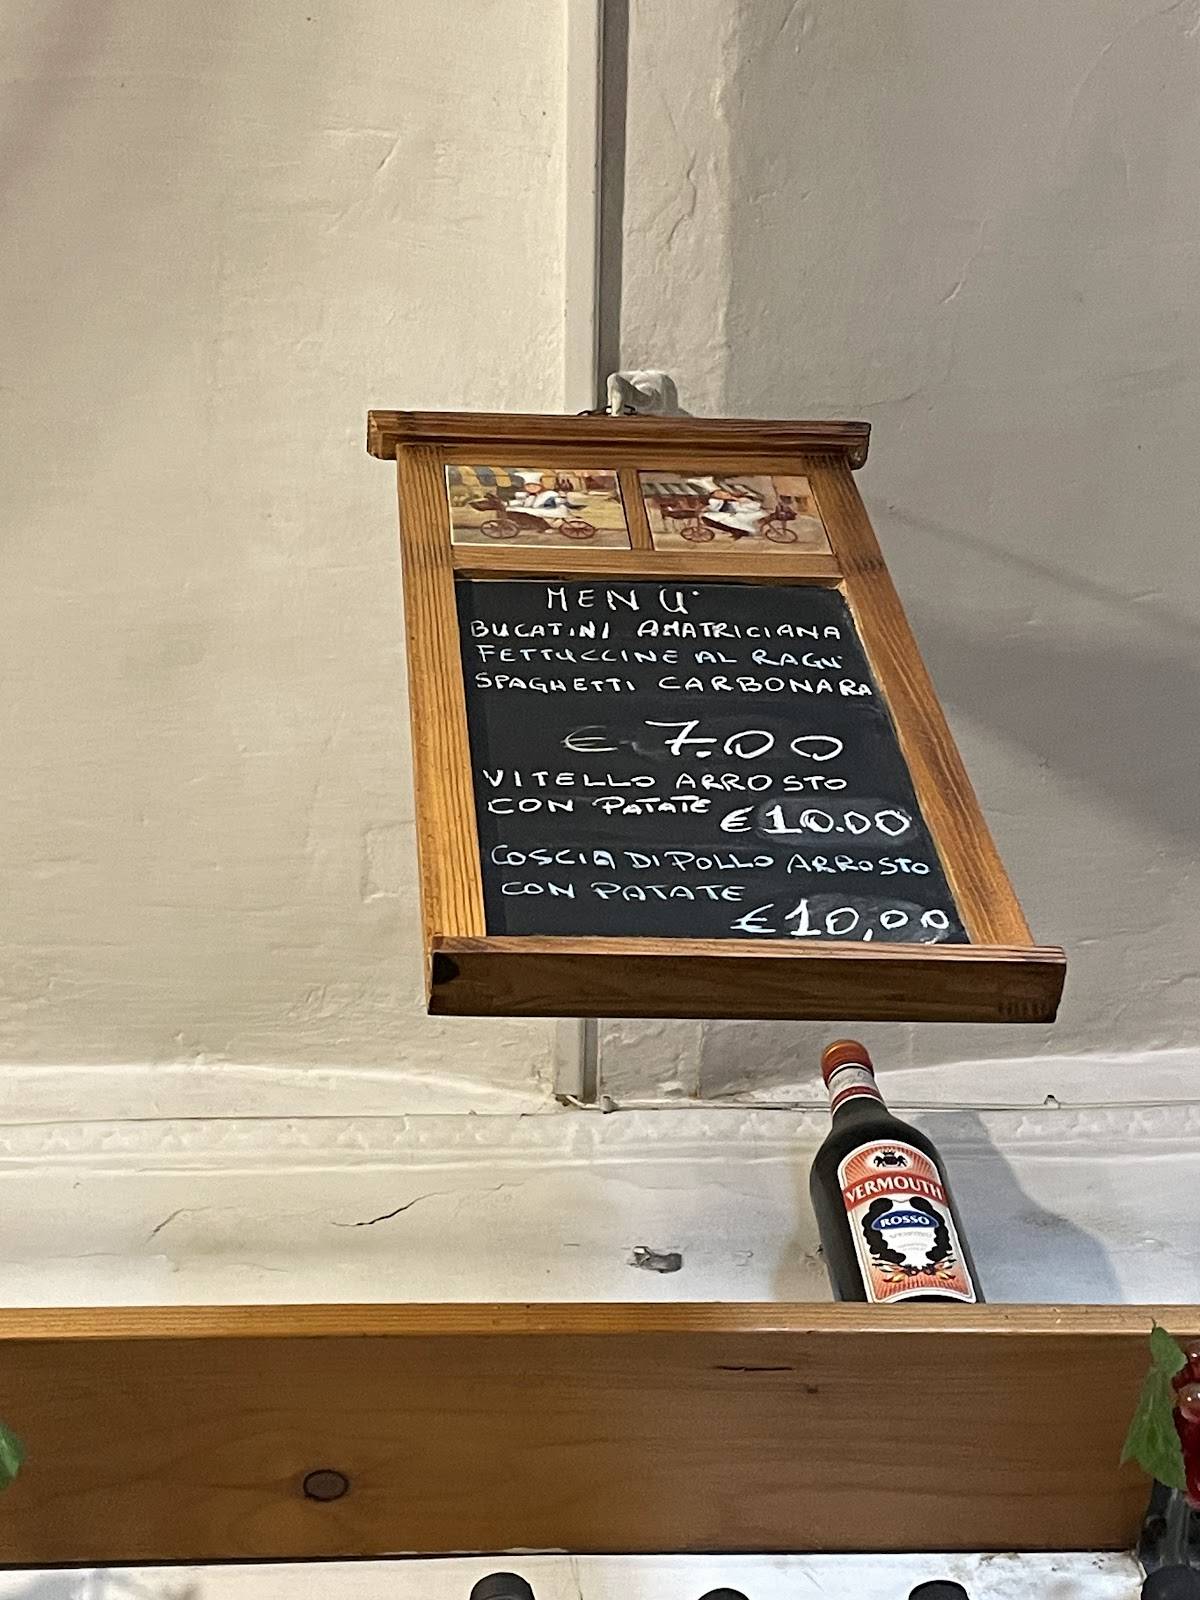 MENU'
BUCATINI AMATRICIANA
FETTUCCINE AL RAGU'
SPAGHETTI CARBONARA
€ 7.00
VITELLO ARROSTO
CON PATATE €10.00
COSCIA DI POLLO ARROSTO
CON PATATE
€10,00
VERMOUTH
ROSSO